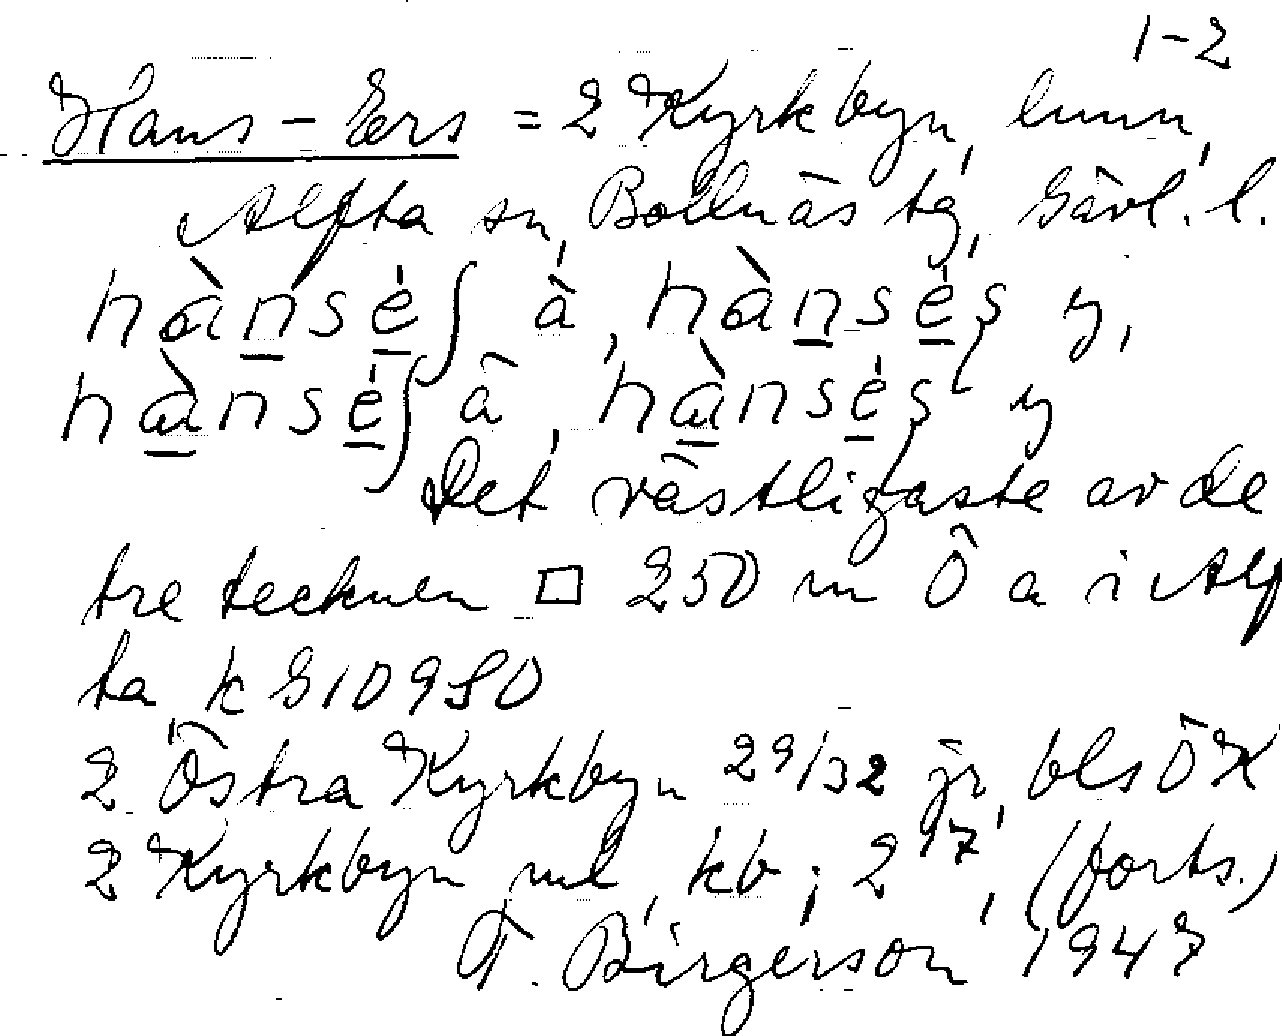 1-2
Hans-Ers = 2 Kyrkbyn, lunn,
Alfta sn, Bollnäs tg, Gävl. l.
hànséʃ ä, hànséş y,
hànséʃ ä, hànséş y
Det västligaste av de
tre tecknen □ 250 m Ö a i Alf
ta, k G10980
2 Östra Kyrkbyn 29/32 jr, bls ÖK
2 Kyrkbyn ml, kb; 2 17, (forts.)
T. Birgerson 1947